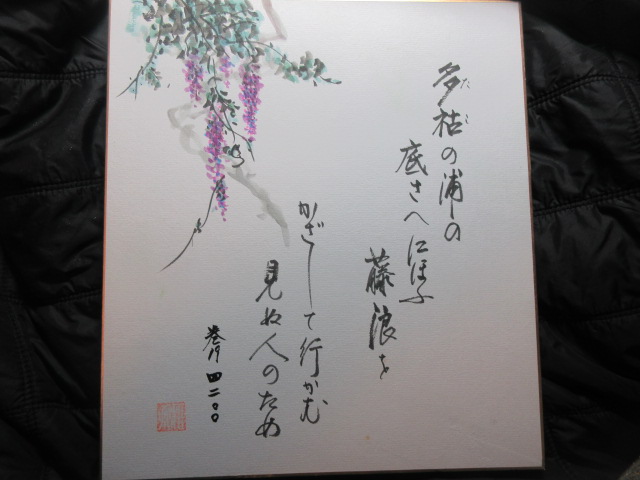 多枯の浦の
たこ
底さへにほふ
藤浪を
かざして行かむ
見ぬ人のため
巻19 四二〇〇